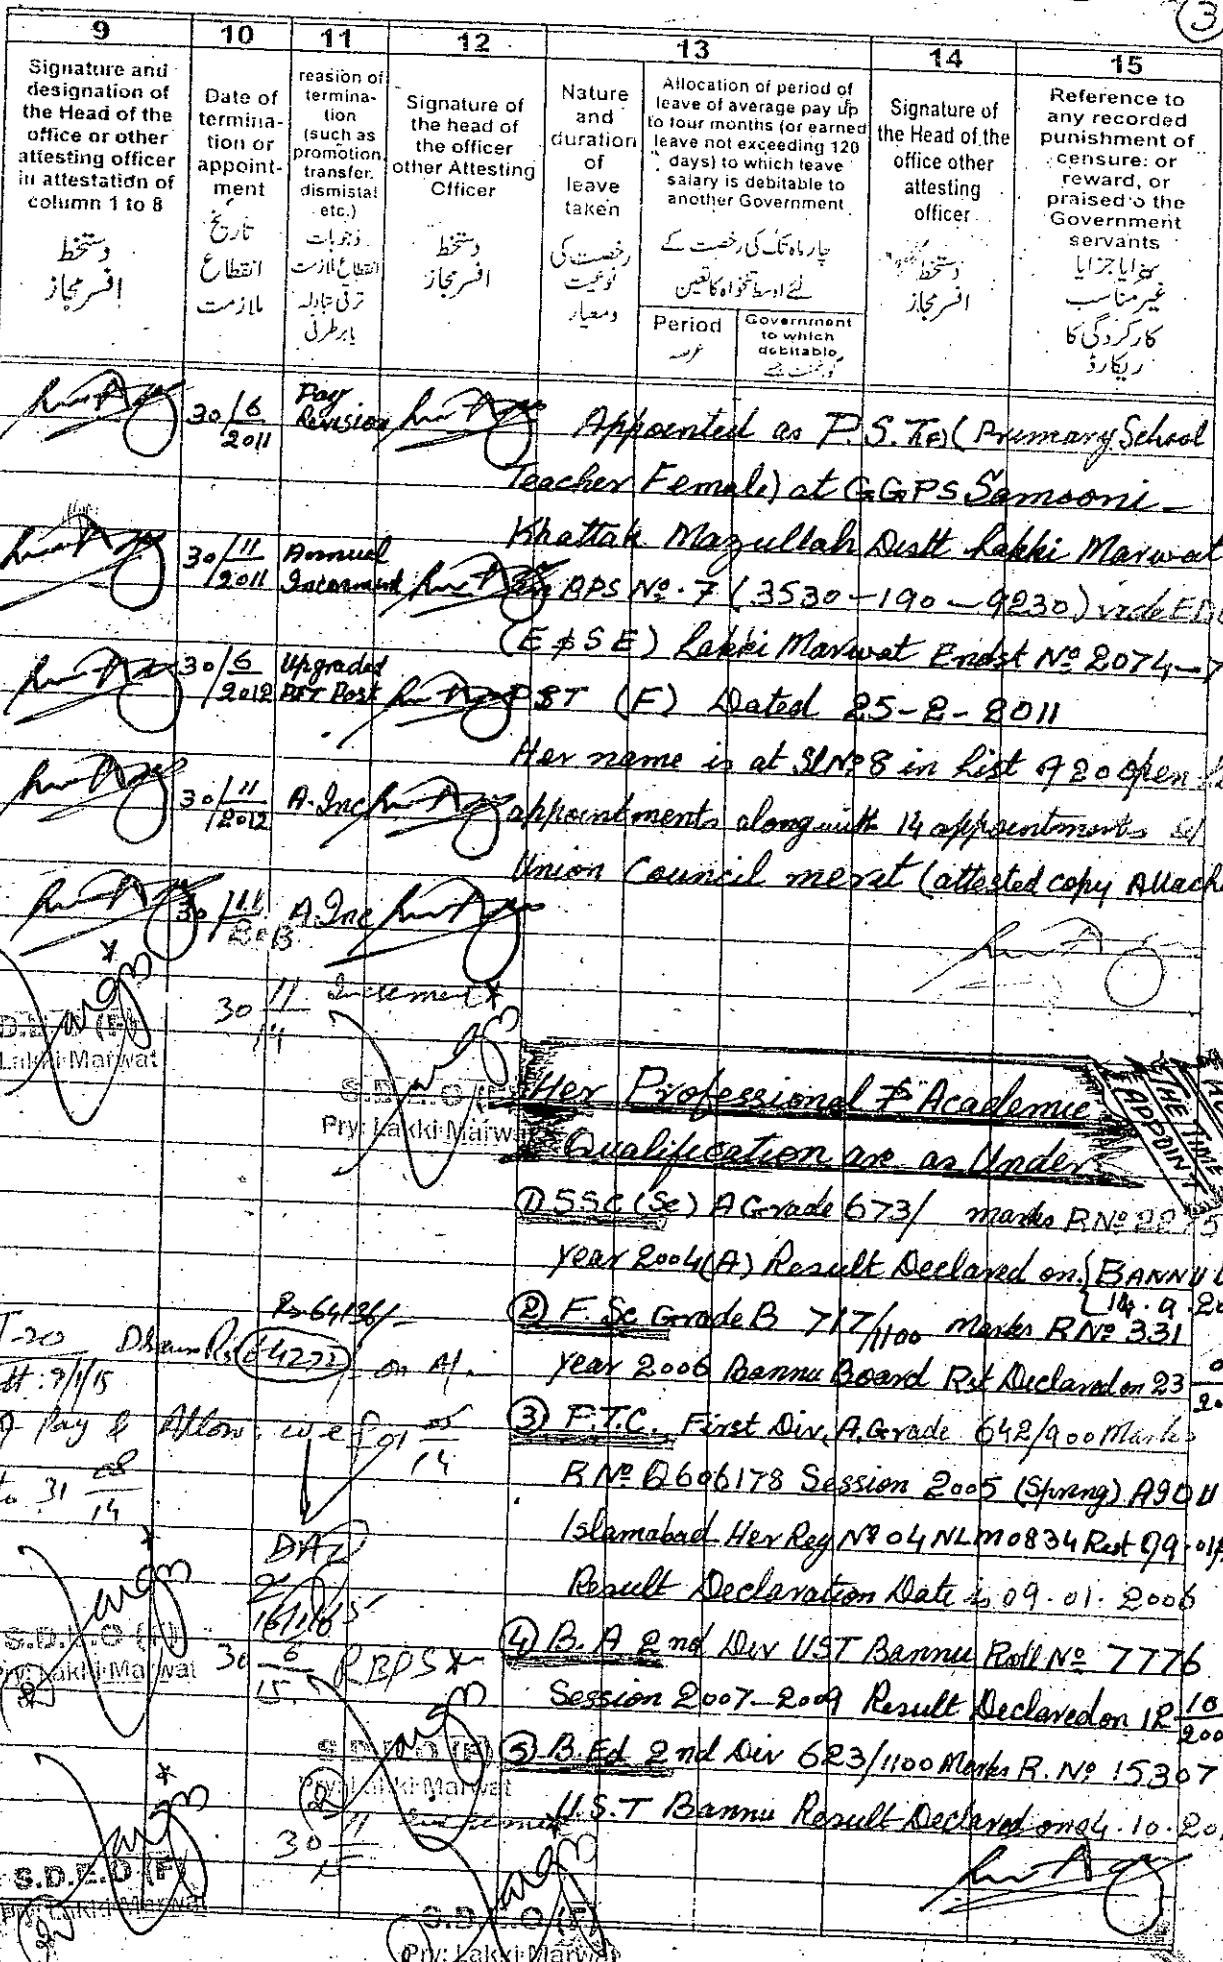 3
9 10 11 12 13 14 15
Signature and designation of the Head of the office or other attesting officer in attestation of column 1 to 8
دستخط افسر مجاز
Date of termina-tion or appoint-ment
تاریخ انقطاع ملازمت
reasion of termina-tion (such as promotion, transfer. dismistal etc.)
وجوہات انقطاع ملازمت ترقی تبادلہ یا برطرفی
Signature of the head of the officer other Attesting Officer
دستخط افسر مجاز
Nature and duration of leave taken
رخصت کی نوعیت ومعیار
Allocation of period of leave of average pay up to four months (or earned leave not exceeding 120 days) to which leave salary is debitable to another Government
چار ماہ تک کی رخصت کے لئے اوسط تنخواہ کا تعین
Period
عرصہ
Government to which debitable
Signature of the Head of the office other attesting officer
دستخط افسر مجاز
Reference to any recorded punishment of censure: or reward, or praised o the Government servants
سزا یا جزا یا غیر مناسب کارکردگی کا ریکارڈ
30/6/2011 Pay Revision
Appointed as P.S.T(F) (Primary School
Teacher Female) at GGPS Samooni
Khattak Mazullah Distt Lakki Marwat
30/11/2011 Annual Increment
BPS Nº.7 (3530-190-9230) vide EDO
(E&SE) Lakki Marwat Endst Nº 2074-7
30/6/2012 Upgraded PST Post
PST (F) Dated 25-2-2011
Her name is at Sl Nº 8 in List of 20 open
30/11/2012 A.Inc
appointments alongwith 14 appointments
Union Council merit (attested copy Attach
30/11 A.Inc
30 11/14 Increment
S.D.E.O (F)
Pry: Lakki Marwat
S.D.E.O (F)
Pry: Lakki Marwat
THE TIME
APPOINT
Her Professional & Academic
Qualification are as Under
① SSC (Sc) A Grade 673/ marks RNº
year 2004(A) Result Declared on BANNU
14.9.20
② F.Sc Grade B 717/1100 marks RNº 331
Rs 64136/-
Drawn Rs 64272/- on A/.
Dt: 9/1/15
year 2006 Bannu Board Rst Declared on 23
of Pay & Allow: w e f 01
to 31 08/14
③ P.T.C. First Div, A.Grade 642/900 Marks
RNº Q606178 Session 2005 (Spring) AIOU
Islamabad Her Reg Nº 04NLM0834
Result Declaration Date is 09.01.2006
S.D.E.O (F)
Pry: Lakki Marwat
30 6/15 RBPS
④ B.A 2nd Div UST Bannu Roll Nº 7776
Session 2007-2009 Result Declared on 12 10/200
⑤ B.Ed 2nd Div 623/1100 Marks R.Nº 15307
U.S.T Bannu Result Declared on 04.10.20
S.D.E.O (F)
Pry: Lakki Marwat
30 11/15 Increment
S.D.E.O (F)
Pry: Lakki Marwat
S.D.E.O (F)
Pry: Lakki Marwat